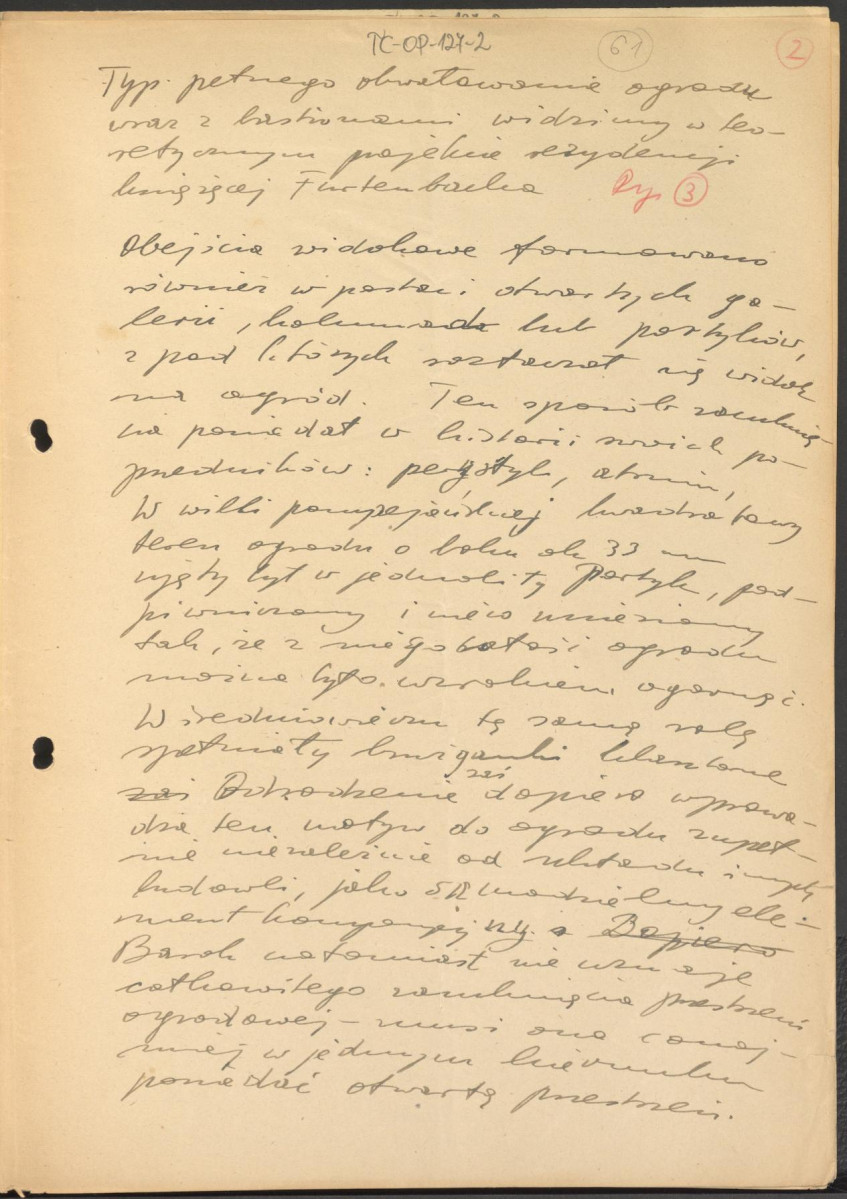 TC-OP-127-2 61 2
Typ pełnego obwałowania ogrodu
wraz z bastionami widzimy w teo-
retycznym projekcie rezydencji
książęcej Furtenbacha Ryc 3
Obejścia widokowe formowano
również w postaci otwartych ga-
lerii, kolumnad lub portyków,
z pod których roztaczał się widok
na ogród. Ten sposób zamknię-
cia posiadał w historii swoich po-
przedników: perystyl, atrium,
W willi pompejańskiej kwadratowy
teren ogrodu o boku ok 33 m
ujęty był w jednolity portyk, pod-
piwniczony i nieco wniesiony
tak, że z niego całość ogrodu
można było wzrokiem ogarnąć.
W średniowieczu tę samą rolę
spełniały krużganki klasztorne
zaś Odrodzenie zaś dopiero wprowa-
dza ten motyw do ogrodu zupeł-
nie niezależnie od układu i myśli
budowli, jako samodzielny ele-
ment kompozycyjny. Dopiero
Barok natomiast nie uznaje
całkowitego zamknięcia przestrzeni
ogrodowej – musi ona conaj-
mniej w jednym kierunku
posiadać otwartą przestrzeń.